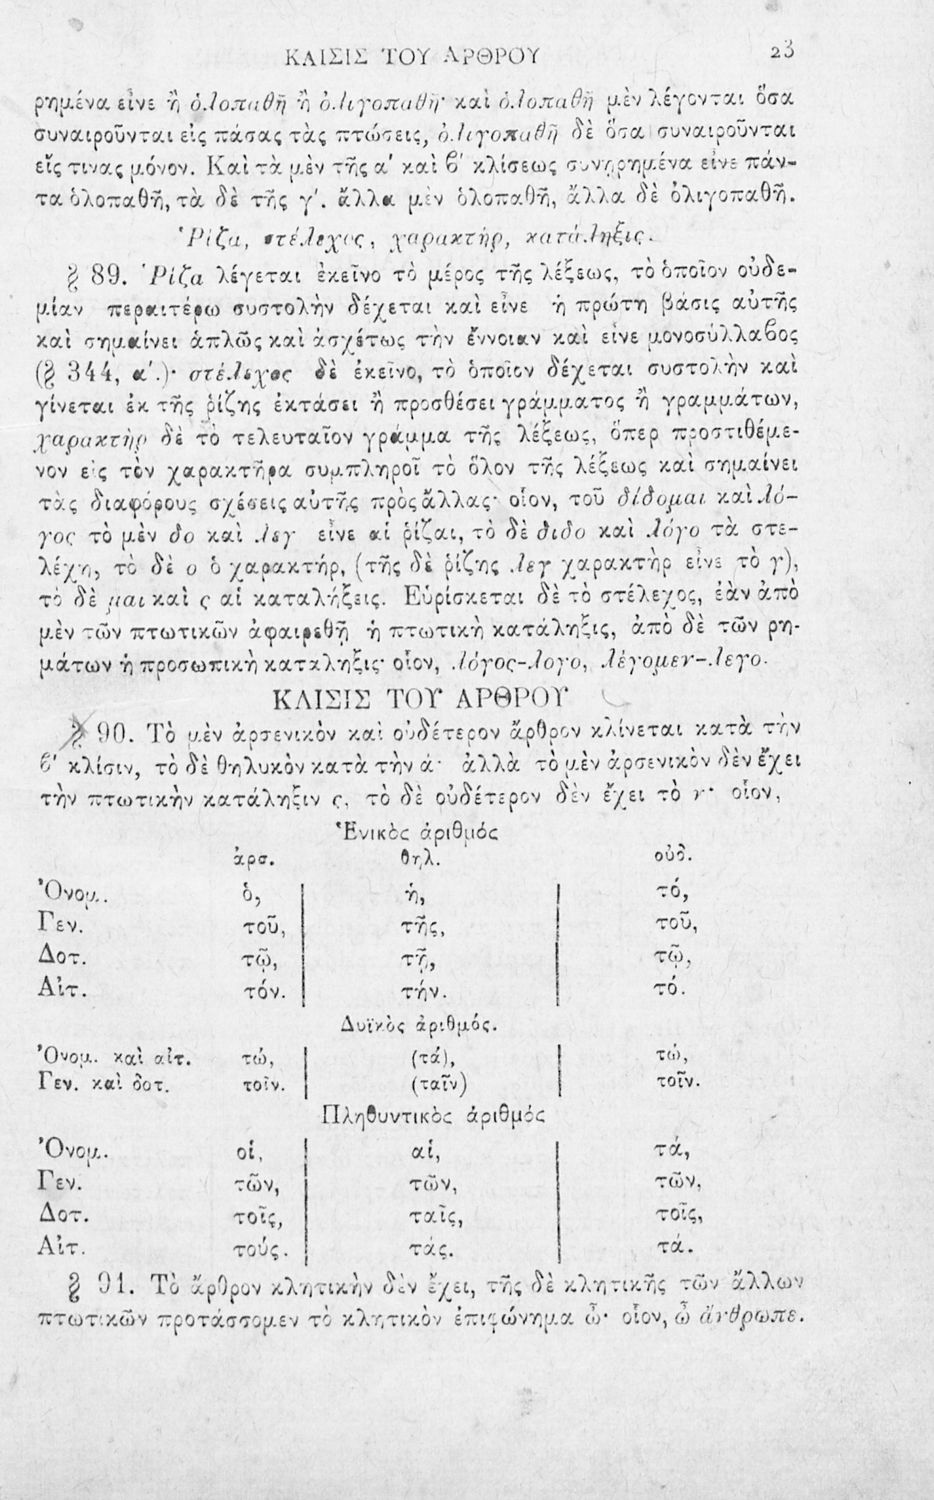 ΚΛΙΣΙΣ ΤΟΥ ΑΡΘΡΟΥ 23
ρημένα εἶνε ἢ ὁλοπαθῆ ἢ ὀλιγοπαθῆ· καὶ ὁλοπαθῆ μὲν λέγονται ὅσα
συναιροῦνται εἰς πάσας τὰς πτώσεις, ὀλιγοπαθῆ δὲ ὅσα συναιροῦνται
εἴς τινας μόνον. Καὶ τὰ μὲν τῆς α' καὶ β' κλίσεως συνῃρημένα εἶνε πάν-
τα ὁλοπαθῆ, τὰ δὲ τῆς γ'. ἄλλα μὲν ὁλοπαθῆ, ἄλλα δὲ ὀλιγοπαθῆ.
Ῥίζα, στέλεχος, χαρακτὴρ, κατάληξις.
§ 89. Ῥίζα λέγεται ἐκεῖνο τὸ μέρος τῆς λέξεως, τὸ ὁποῖον οὐδε-
μίαν περαιτέρω συστολὴν δέχεται καὶ εἶνε ἡ πρώτη βάσις αὐτῆς
καὶ σημαίνει ἁπλῶς καὶ ἀσχέτως τὴν ἔννοιαν καὶ εἶνε μονοσύλλαβος
(§ 344, α'.)· στέλεχος δὲ ἐκεῖνο, τὸ ὁποῖον δέχεται συστολὴν καὶ
γίνεται ἐκ τῆς ῥίζης ἐκτάσει ἢ προσθέσει γράμματος ἢ γραμμάτων,
χαρακτὴρ δὲ τὸ τελευταῖον γράμμα τῆς λέξεως, ὅπερ προστιθέμε-
νον εἰς τὸν χαρακτῆρα συμπληροῖ τὸ ὅλον τῆς λέξεως καὶ σημαίνει
τὰς διαφόρους σχέσεις αὐτῆς πρὸς ἄλλας· οἷον, τοῦ δίδομαι καὶ λό-
γος τὸ μὲν δο καὶ λεγ εἶνε αἱ ῥίζαι, τὸ δὲ διδο καὶ λόγο τὰ στε-
λέχη, τὸ δὲ ο ὁ χαρακτήρ, (τῆς δὲ ῥίζης λεγ χαρακτὴρ εἶνε τὸ γ),
τὸ δὲ μαι καὶ ς αἱ καταλήξεις. Εὑρίσκεται δὲ τὸ στέλεχος, ἐὰν ἀπὸ
μὲν τῶν πτωτικῶν ἀφαιρεθῇ ἡ πτωτικὴ κατάληξις, ἀπὸ δὲ τῶν ρη-
μάτων ἡ προσωπικὴ κατάληξις· οἷον, λόγος-λογο, λέγομεν-λεγο.
ΚΛΙΣΙΣ ΤΟΥ ΑΡΘΡΟΥ
§ 90. Τὸ μὲν ἀρσενικὸν καὶ οὐδέτερον ἄρθρον κλίνεται κατὰ τὴν
β' κλίσιν, τὸ δὲ θηλυκὸν κατὰ τὴν ά· ἀλλὰ τὸ μὲν ἀρσενικὸν δὲν ἔχει
τὴν πτωτικὴν κατάληξιν ς, τὸ δὲ οὐδέτερον δὲν ἔχει τὸ ν· οἷον,
Ἑνικὸς ἀριθμός
ἀρσ. θηλ. οὐδ.
Ὀνομ.. ὁ, ἡ, τό,
Γεν. τοῦ, τῆς, τοῦ,
Δοτ. τῷ, τῇ, τῷ,
Αἰτ. τόν. τήν. τό.
Δυϊκὸς ἀριθμός.
Ὀνομ. καὶ αἰτ. τώ, (τά), τώ,
Γεν. καὶ δοτ. τοῖν. (ταῖν) τοῖν.
Πληθυντικὸς ἀριθμός
Ὀνομ. οἱ, αἱ, τά,
Γεν. τῶν, τῶν, τῶν,
Δοτ. τοῖς, ταῖς, τοῖς,
Αἰτ. τούς. τάς. τά.
§ 91. Τὸ ἄρθρον κλητικὴν δὲν ἔχει, τῆς δὲ κλητικῆς τῶν ἄλλων
πτωτικῶν προτάσσομεν τὸ κλητικὸν ἐπιφώνημα ὦ· οἷον, ὦ ἄνθρωπε.